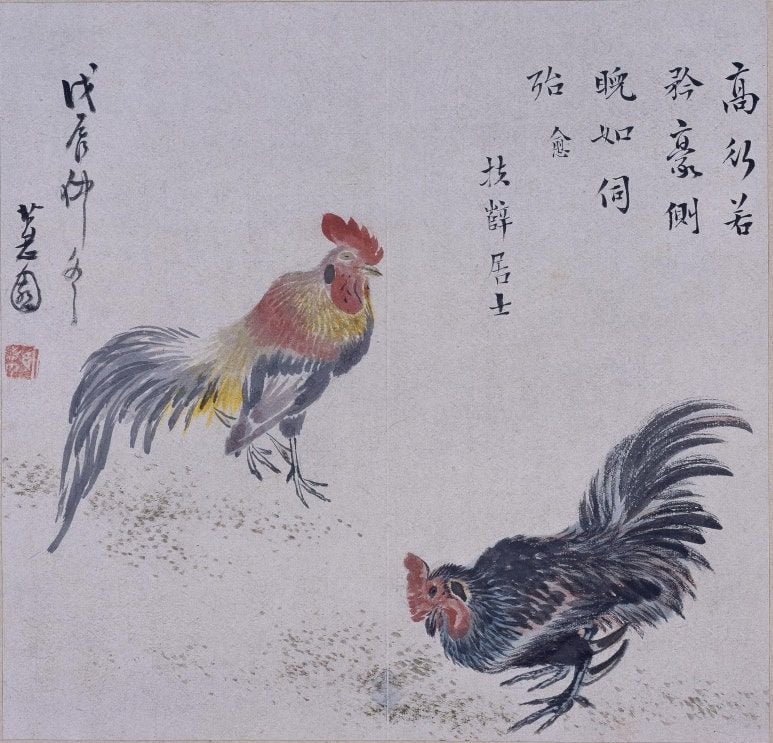 高行若
矜豪側
睨如伺
殆 愈
居士
戊辰仲冬
園